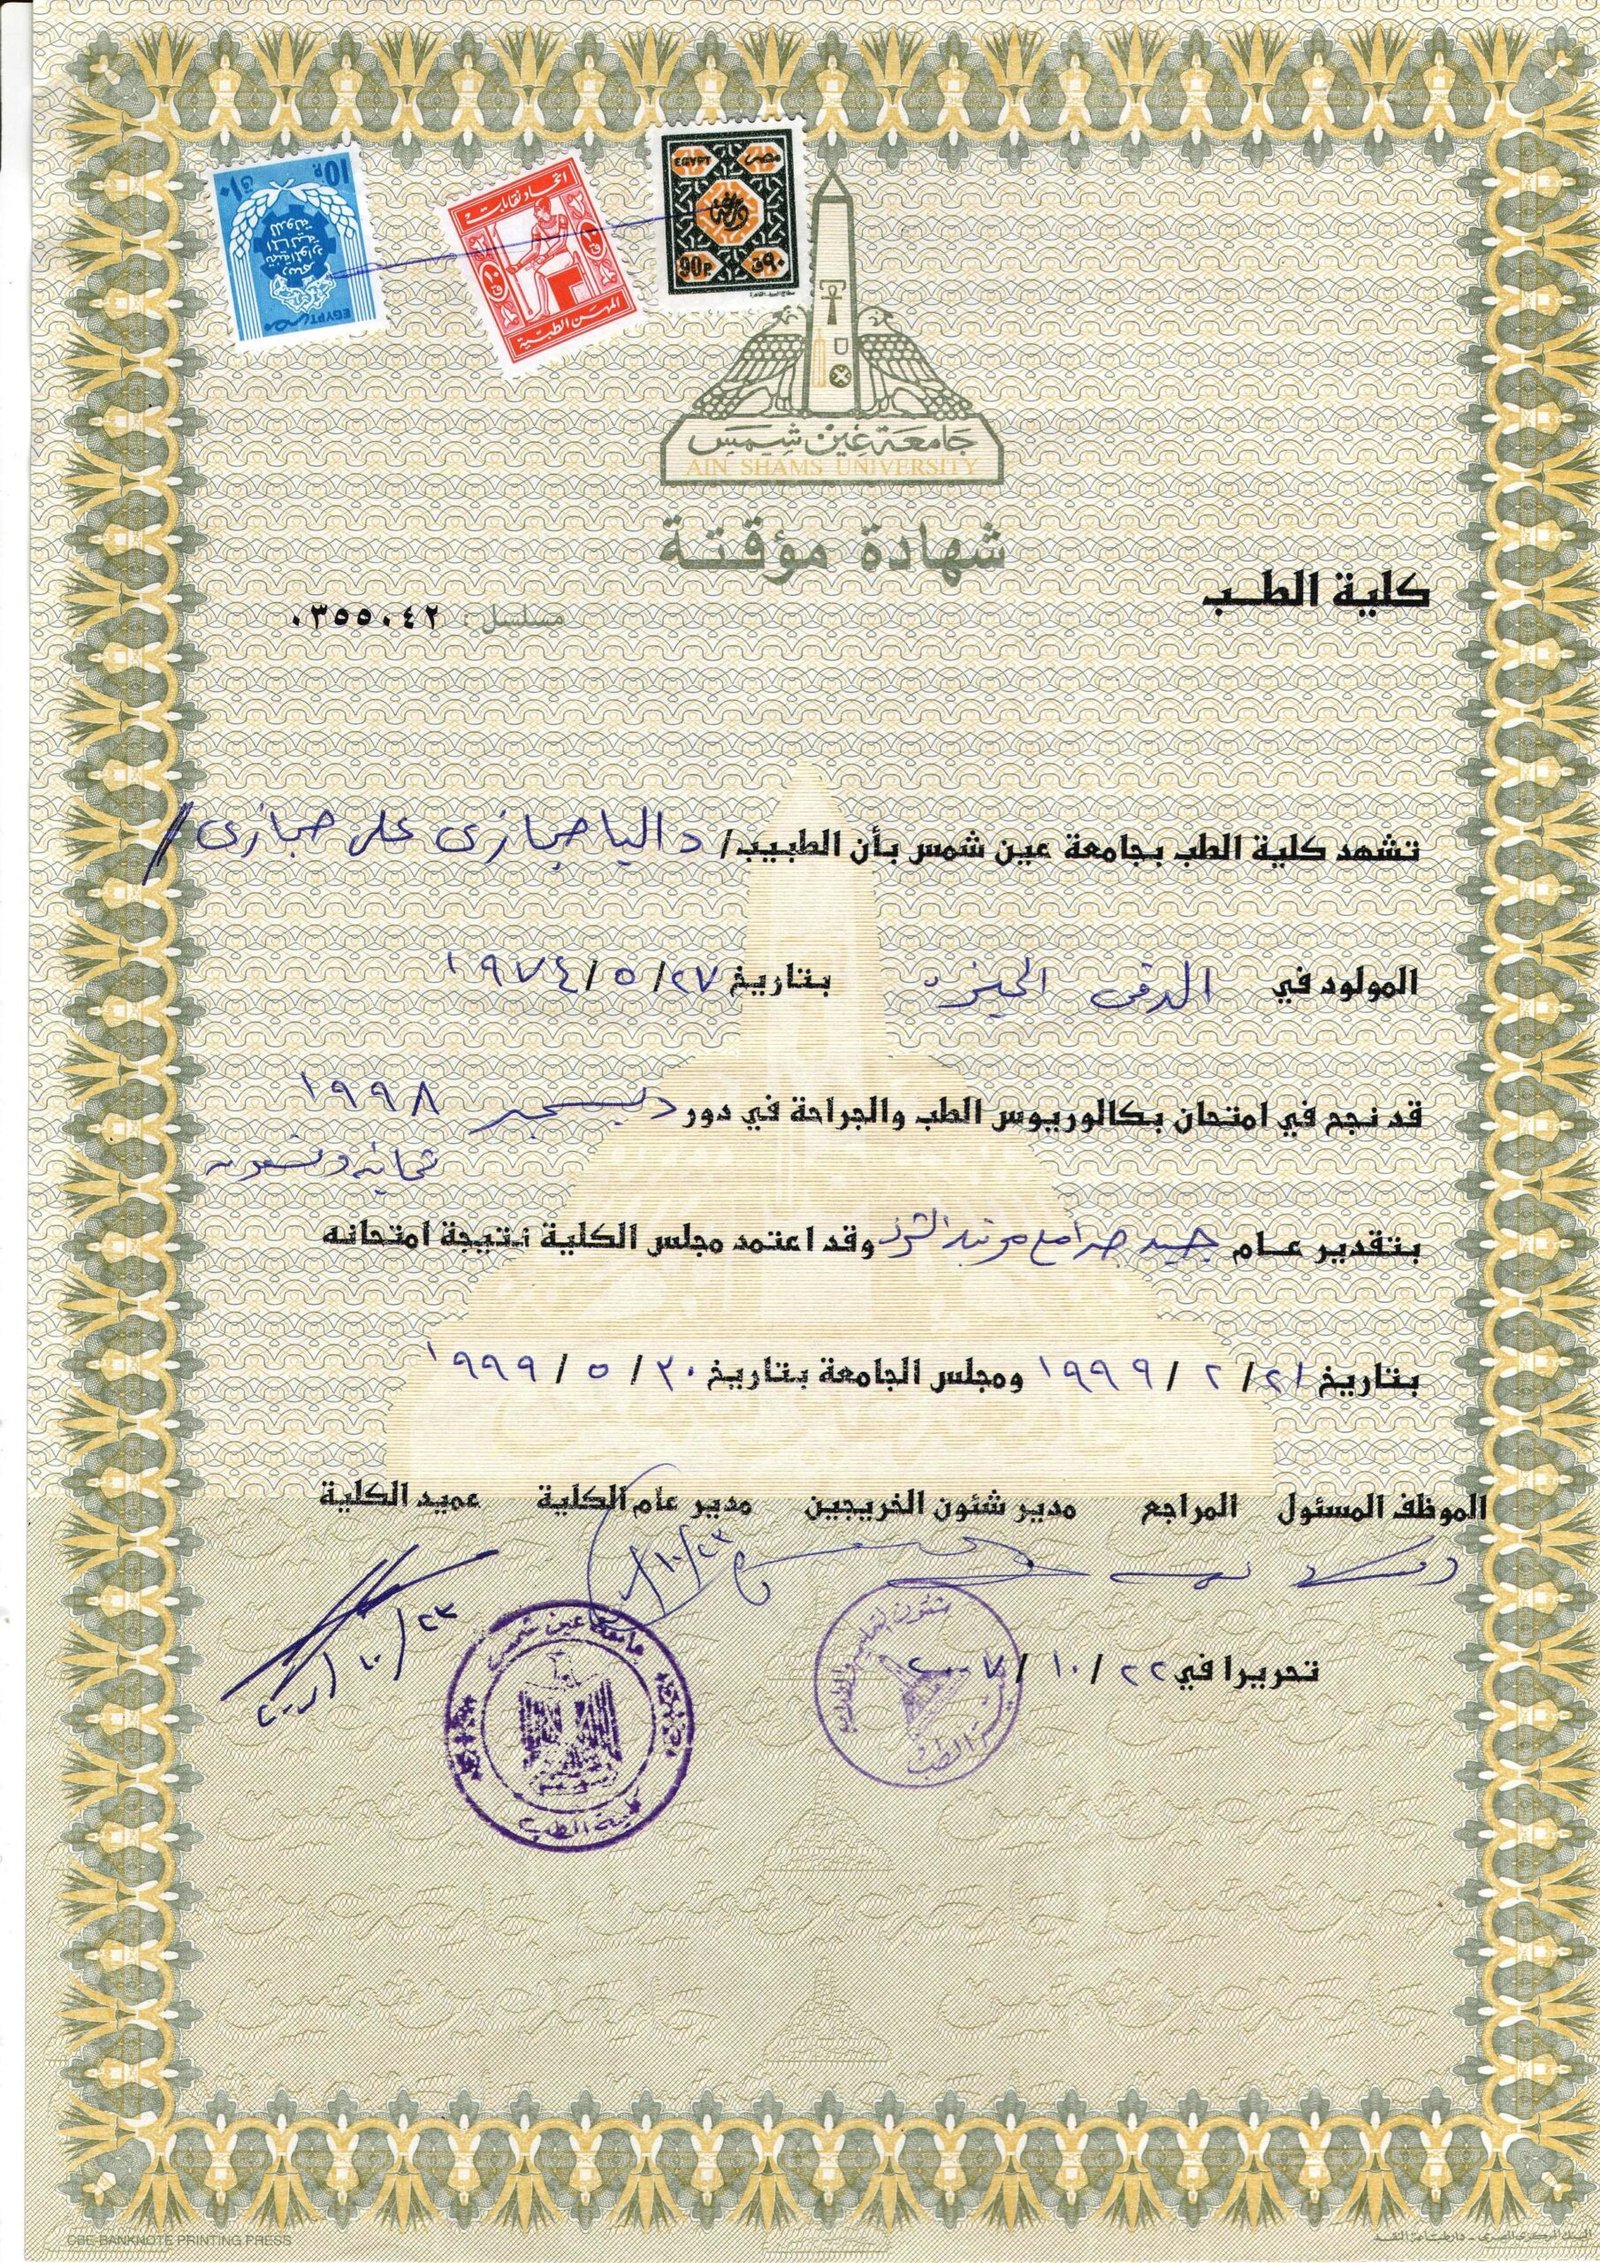 EGYPT مصر
90P ٩٠ق
اتحاد نقابات
المهن الطبية
10P ١٠ق
EGYPT مصر
جامعة عين شمس
AIN SHAMS UNIVERSITY
شهادة مؤقتة
كلية الطب
مسلسل : ٠٣٥٥٠٤٢
تشهد كلية الطب بجامعة عين شمس بأن الطبيب/ داليا حجازى على حجازى //
المولود في الدقى الجيزة بتاريخ ٢٧/ ٥/ ١٩٧٤
قد نجح في امتحان بكالوريوس الطب والجراحة في دور ديسمبر ١٩٩٨
ثمانية وتسعون
بتقدير عام جيد جدا مع مرتبة الشرف وقد اعتمد مجلس الكلية نتيجة امتحانه
بتاريخ ٢١/ ٢ /١٩٩٩ ومجلس الجامعة بتاريخ ٣٠/ ٥ /١٩٩٩
الموظف المسئول المراجع مدير شئون الخريجين مدير عام الكلية عميد الكلية
١٠/٢٣
١٠/٢٣
تحريرا في ٢٢/ ١٠/ ٢٠٠٧
شئون التعليم والطلاب
كلية الطب
جامعة عين شمس
كلية الطب
CBE-BANKNOTE PRINTING PRESS
البنك المركزى المصرى - دار طباعة النقد